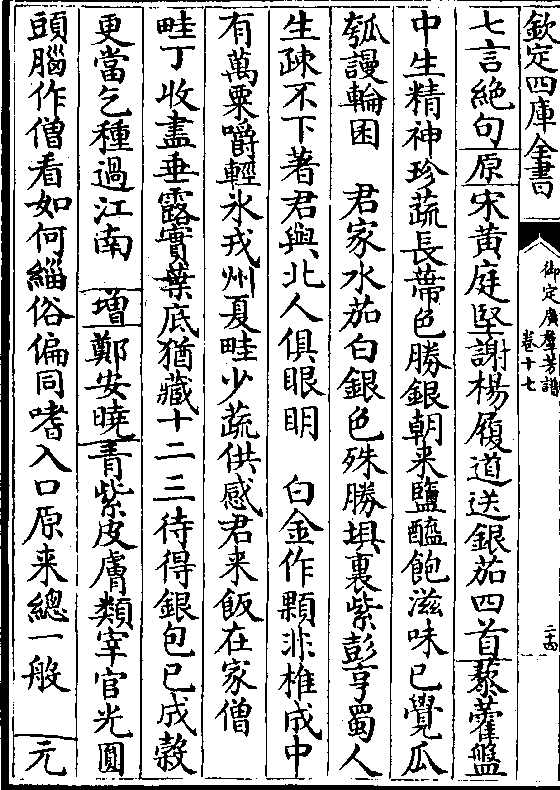 欽定四庫全書
御定廣羣芳譜
卷十七
二十四
七言絶句原宋黃庭堅謝楊履道送銀茄四首藜藿盤
中生精神珍蔬長蔕色勝銀朝来鹽醯飽滋味已覺瓜
瓠謾輪囷　君家水茄白銀色殊勝埧裏紫彭亨蜀人
生疎不下著君與北人俱眼明　白金作顆非椎成中
有萬粟嚼輕氷戎州夏畦少蔬供感君来飯在家僧
畦丁收盡垂露實葉底猶藏十二三待得銀包已成榖
更當乞種過江南　増鄭安曉青紫皮膚類宰官光圓
頭腦作僧看如何緇俗偏同嗜入口原来總一般　元